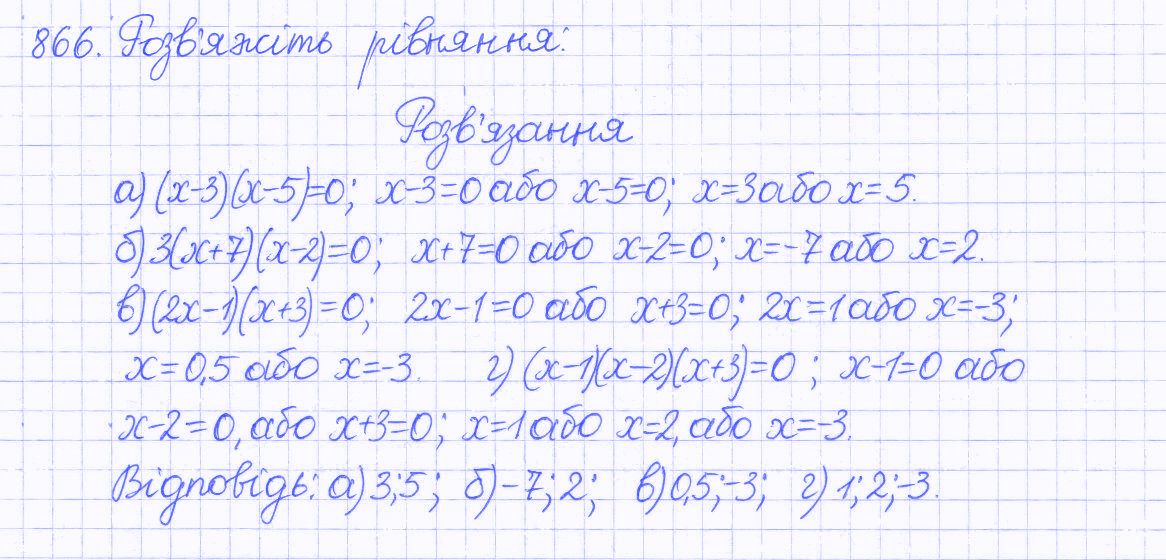 866. Розв'яжіть рівняння:
Розв'язання
а) (x-3)(x-5)=0; x-3=0 або x-5=0; x=3 або x=5.
б) 3(x+7)(x-2)=0; x+7=0 або x-2=0; x=-7 або x=2.
в) (2x-1)(x+3)=0; 2x-1=0 або x+3=0; 2x=1 або x=-3;
x=0,5 або x=-3. г) (x-1)(x-2)(x+3)=0; x-1=0 або
x-2=0, або x+3=0; x=1 або x=2, або x=-3.
Відповідь: а) 3;5; б) -7;2; в) 0,5;-3; г) 1;2;-3.